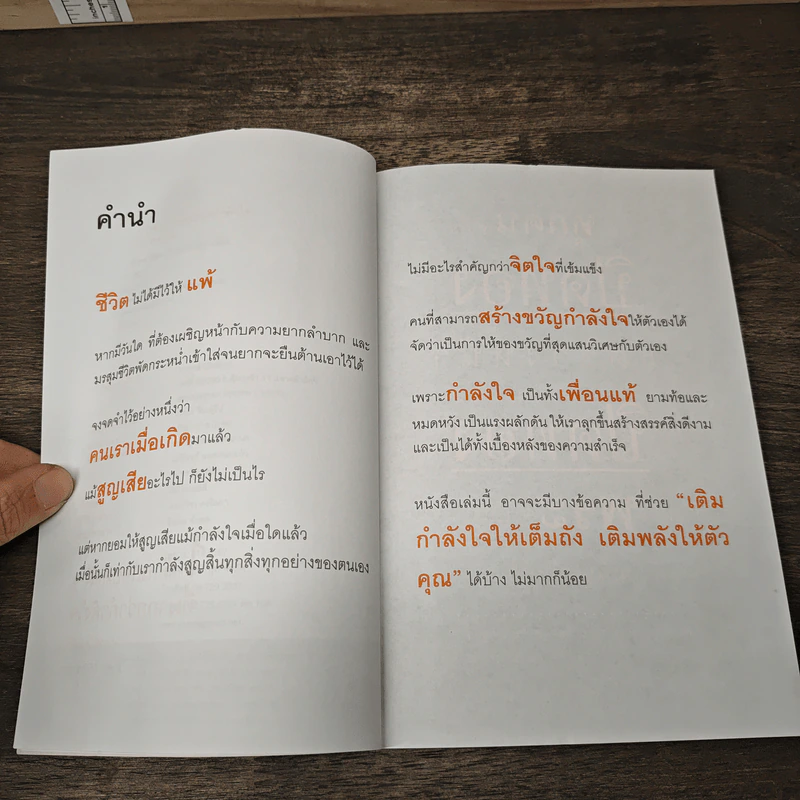 คำนำ
ชีวิต ไม่ได้มีไว้ให้ แพ้
หากมีวันใด ที่ต้องเผชิญหน้ากับความยากลำบาก และ
มรสุมชีวิตพัดกระหน่ำเข้าใส่จนยากจะยืนต้านเอาไว้ได้
จงจดจำไว้อย่างหนึ่งว่า
คนเราเมื่อเกิดมาแล้ว
แม้สูญเสียอะไรไป ก็ยังไม่เป็นไร
แต่หากยอมให้สูญเสียแม้กำลังใจเมื่อใดแล้ว
เมื่อนั้นก็เท่ากับเรากำลังสูญสิ้นทุกสิ่งทุกอย่างของตนเอง
ไม่มีอะไรสำคัญกว่าจิตใจที่เข้มแข็ง
คนที่สามารถสร้างขวัญกำลังใจให้ตัวเองได้
จัดว่าเป็นการให้ของขวัญที่สุดแสนวิเศษกับตัวเอง
เพราะกำลังใจ เป็นทั้งเพื่อนแท้ ยามท้อและ
หมดหวัง เป็นแรงผลักดัน ให้เราลุกขึ้นสร้างสรรค์สิ่งดีงาม
และเป็นได้ทั้งเบื้องหลังของความสำเร็จ
หนังสือเล่มนี้ อาจจะมีบางข้อความ ที่ช่วย “เติม
กำลังใจให้เต็มถัง เติมพลังให้ตัว
คุณ” ได้บ้าง ไม่มากก็น้อย